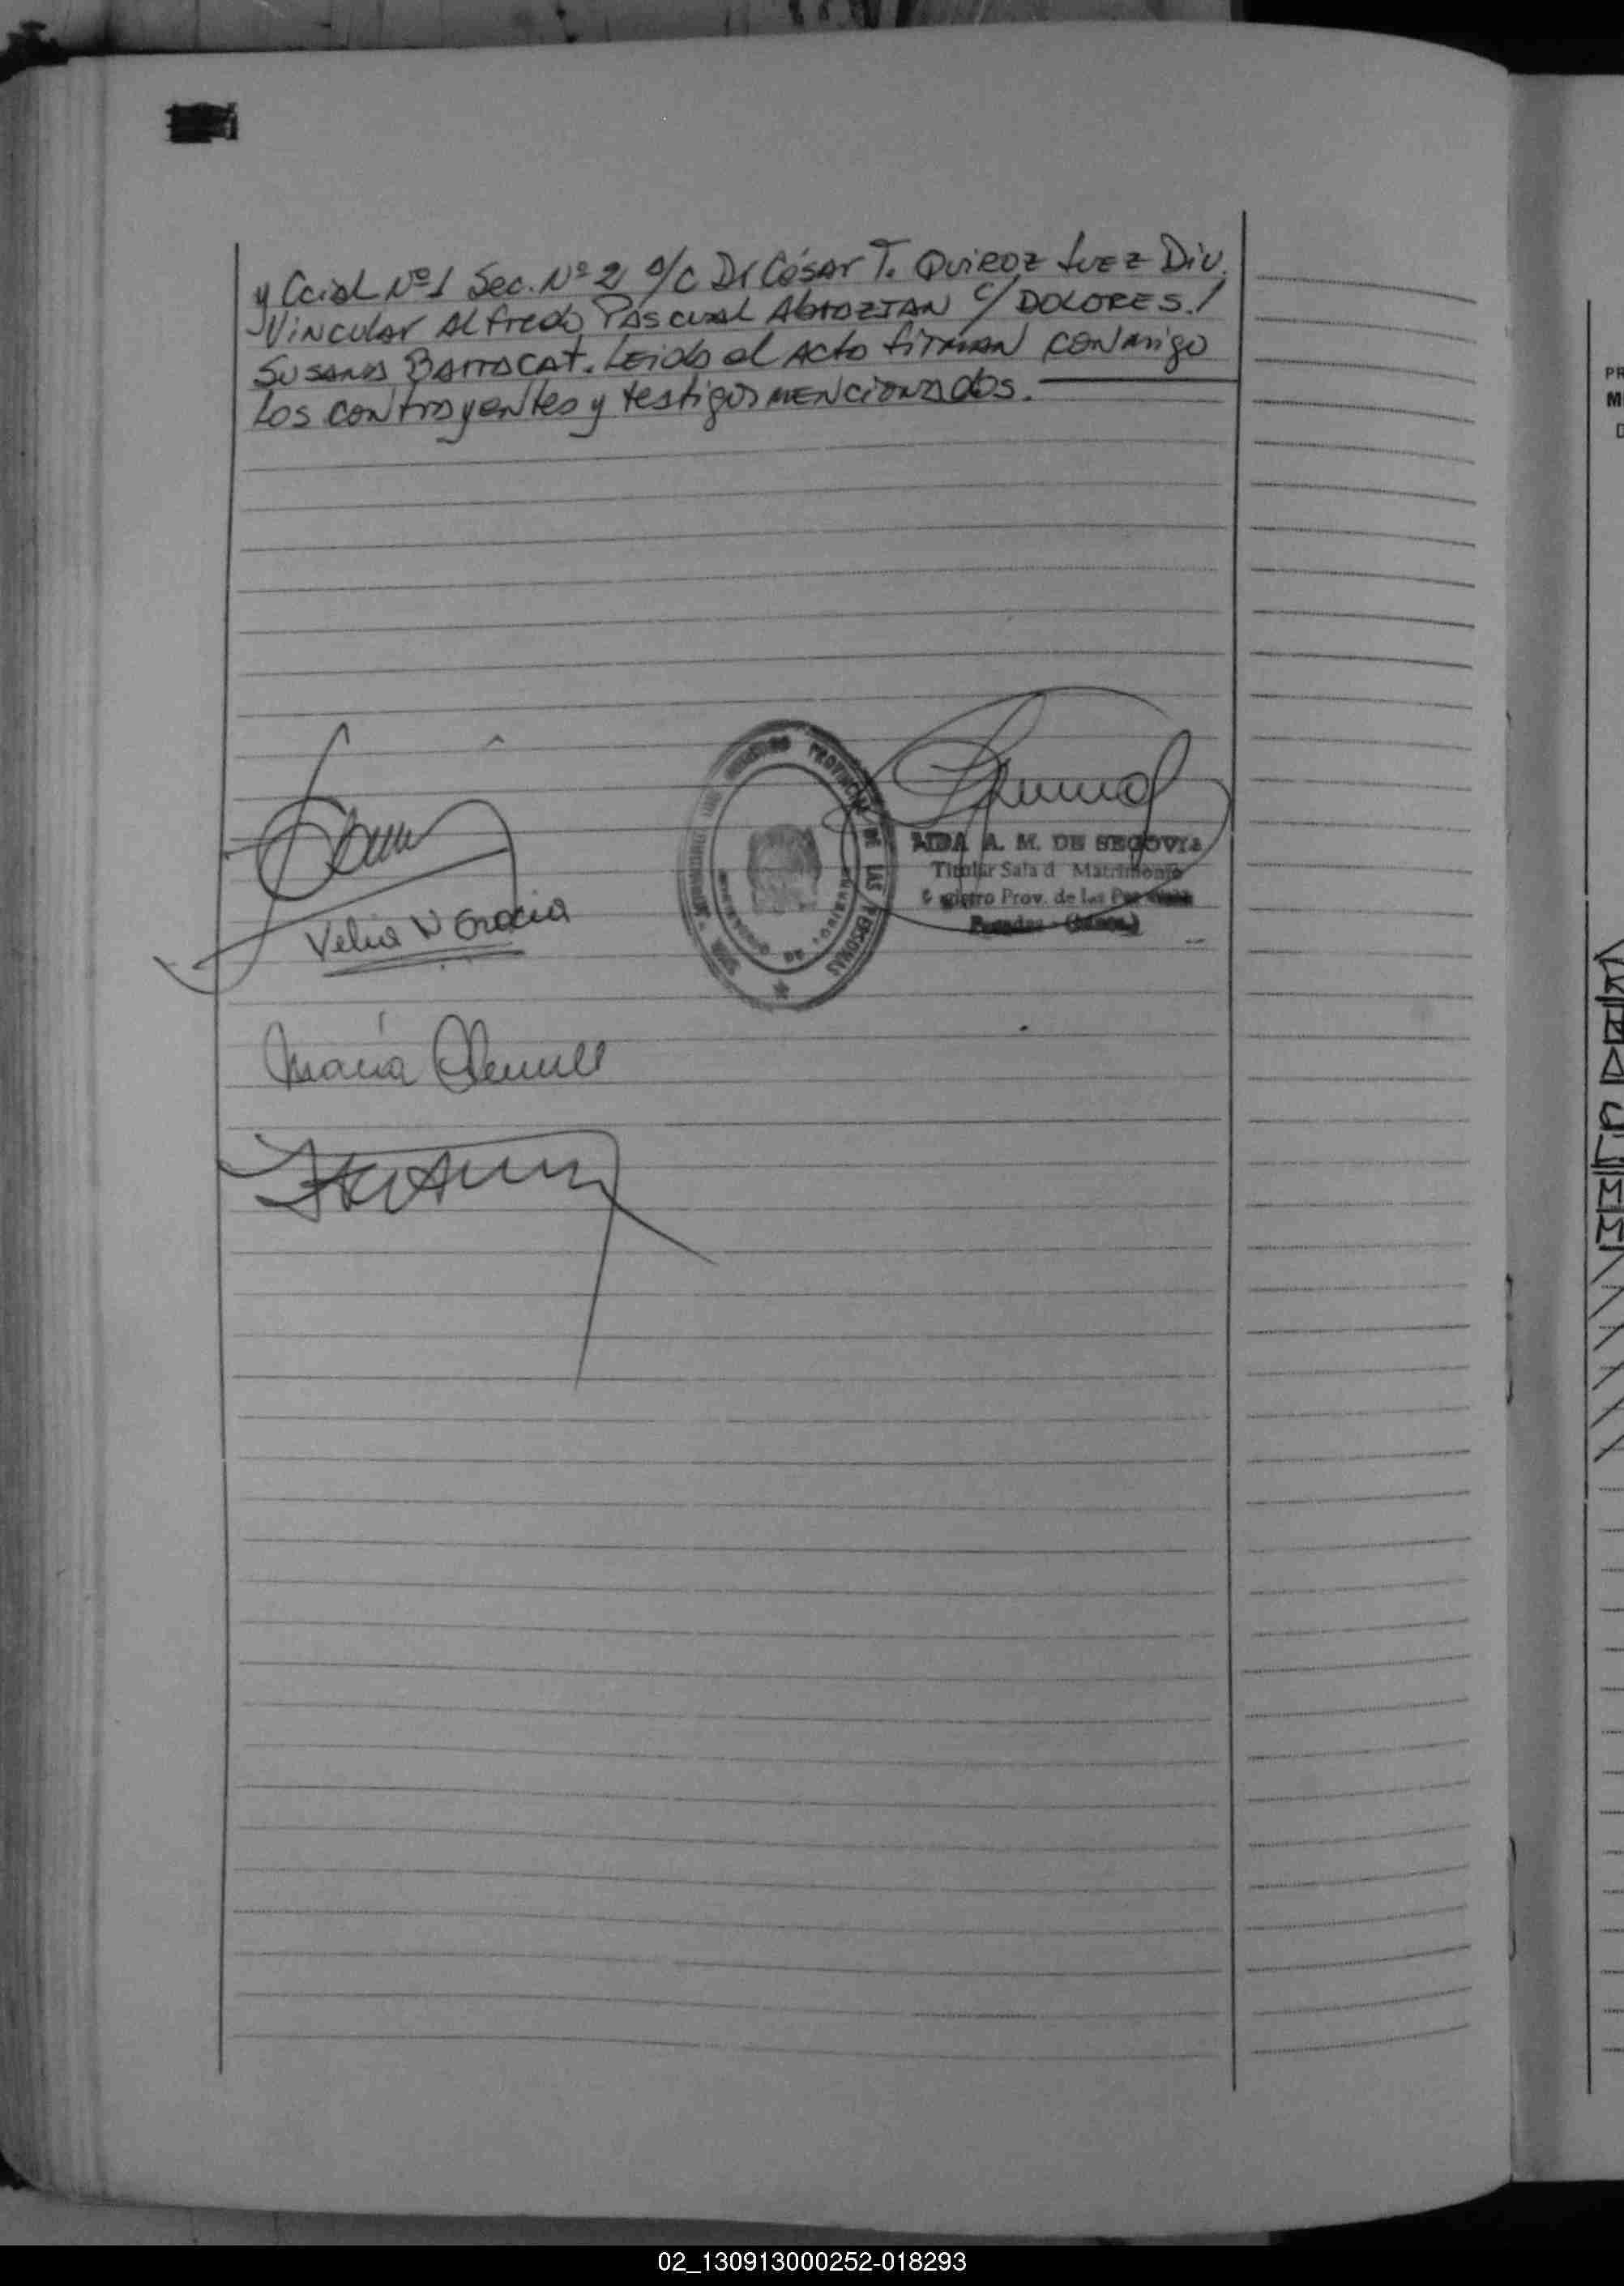 y Ccial Nº1 Sec. Nº 2 a/c Dr César T. Quiroz Juez Div.
Vincular Alfredo Pascual Abrozian c/ DOLORES./
Susana Barracat. Leido el Acto firman conmigo
Los contrayentes y testigos mencionados.
PROVINCIAL DE LAS PERSONAS
AIDA A. M. DE SEGOVIA
Titular Sala d Matrimonio
gistro Prov. de las
Posadas - (Mnes.)
Velia N Gracia
Maria
PR
M
D
02_130913000252-018293